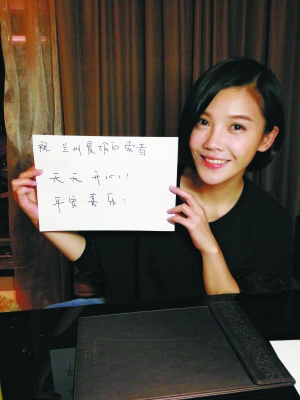 祝 兰州晨报的读者
天天开心！！
平安喜乐！